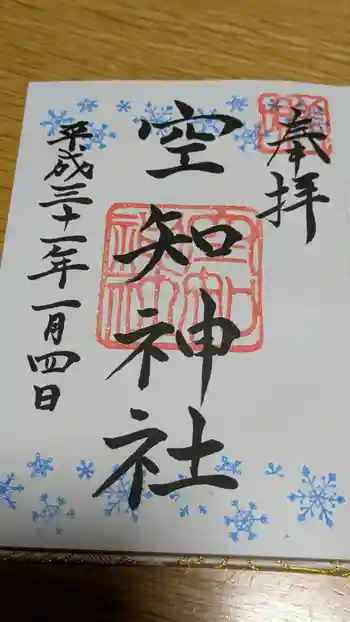 奉拝
空知神社
平成三十一年一月四日
空知
神社